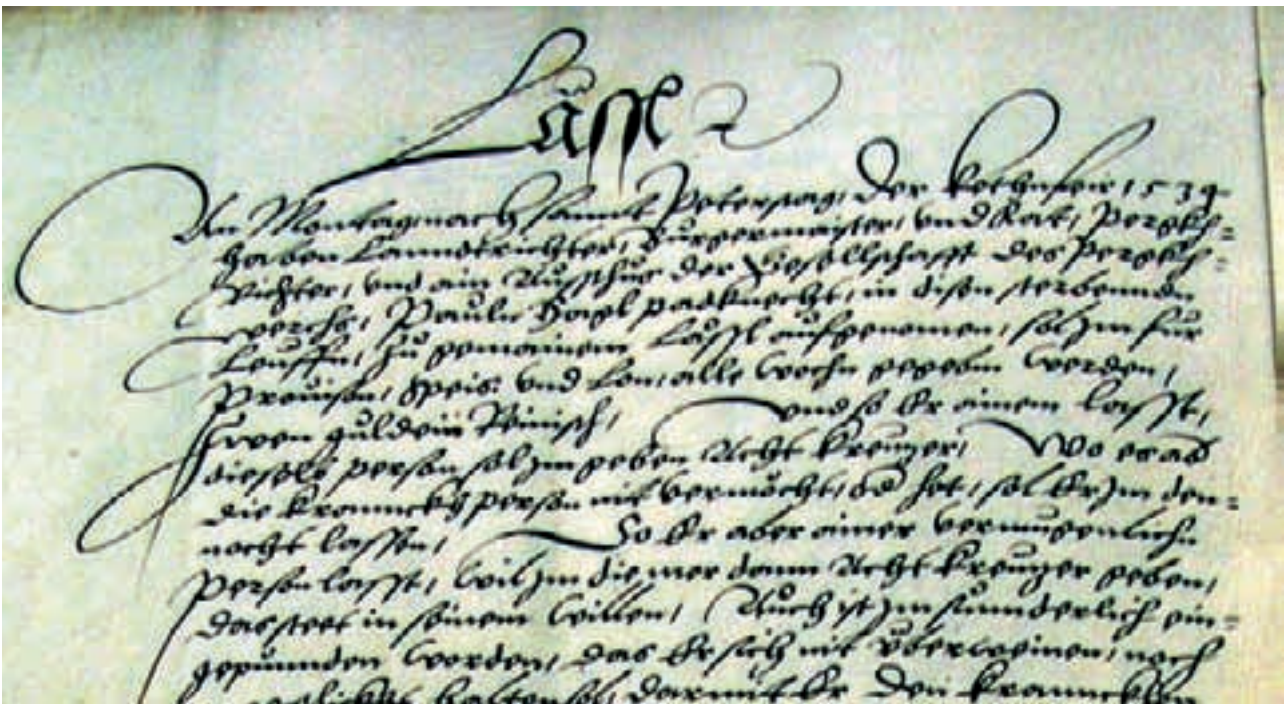 Lässl
An Montag nach sannt Peterstag, der kethnfeir 1539
haben Lanndtrichter, Burgermaister, vnd Rat, Pergkh=
Richter, vnd ain Ausschus der Gesellschafft des Pergkh=
werchs, Pauln Hagl padknecht, in disen sterbennden
Leuffn, zu gemainem Lässl aufgenomen, sol Jm für
Prouision, Speis: vnd Lon, alle wochn gegebn werden,
zwen guldein Reinisch, vnd so Er ainem lasst,
dieselb person sol Jm geben Acht kreuzer, Wo es ab
die krannckh person nit vermöcht, od het, sol Er Jm den=
nocht lassen, So Er aber ainer vermugenlichn
Person lasst, wil Jm die mer dann Acht kreuzer geben,
das steet in seinem willen, Auch ist Jm sunnderlich ein=
gepunnden worden, das Er sich nit überweinen, noch
halten sol, darmit Er den kranncken